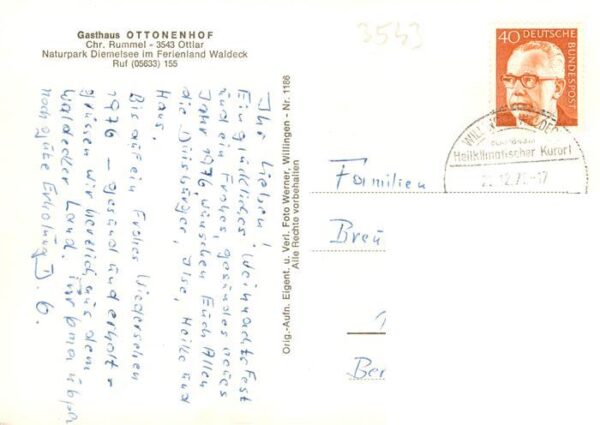 Gasthaus OTTONENHOF
Chr. Rummel - 3543 Ottlar
Naturpark Diemelsee im Ferienland Waldeck
Ruf (05633) 155
3543
40
DEUTSCHE
BUNDESPOST
Heilklimatischer Kurort
Ihr Lieben!
Ein glückliches Weihnachtsfest
und ein Frohes, gesundes neues
Jahr 1976 wünschen Euch Allen
die Duisburger, Ilse, Heike und
Haus.
Bis auf ein Frohes Wiedersehen
1976 - gesund und erholt -
grüssen wir herzlich aus dem
Waldecker Land.
noch gute Erholung
Orig.-Aufn. Eigent. u. Verl. Foto Werner, Willingen - Nr. 1186
Alle Rechte vorbehalten
Familien
Breu
Ber